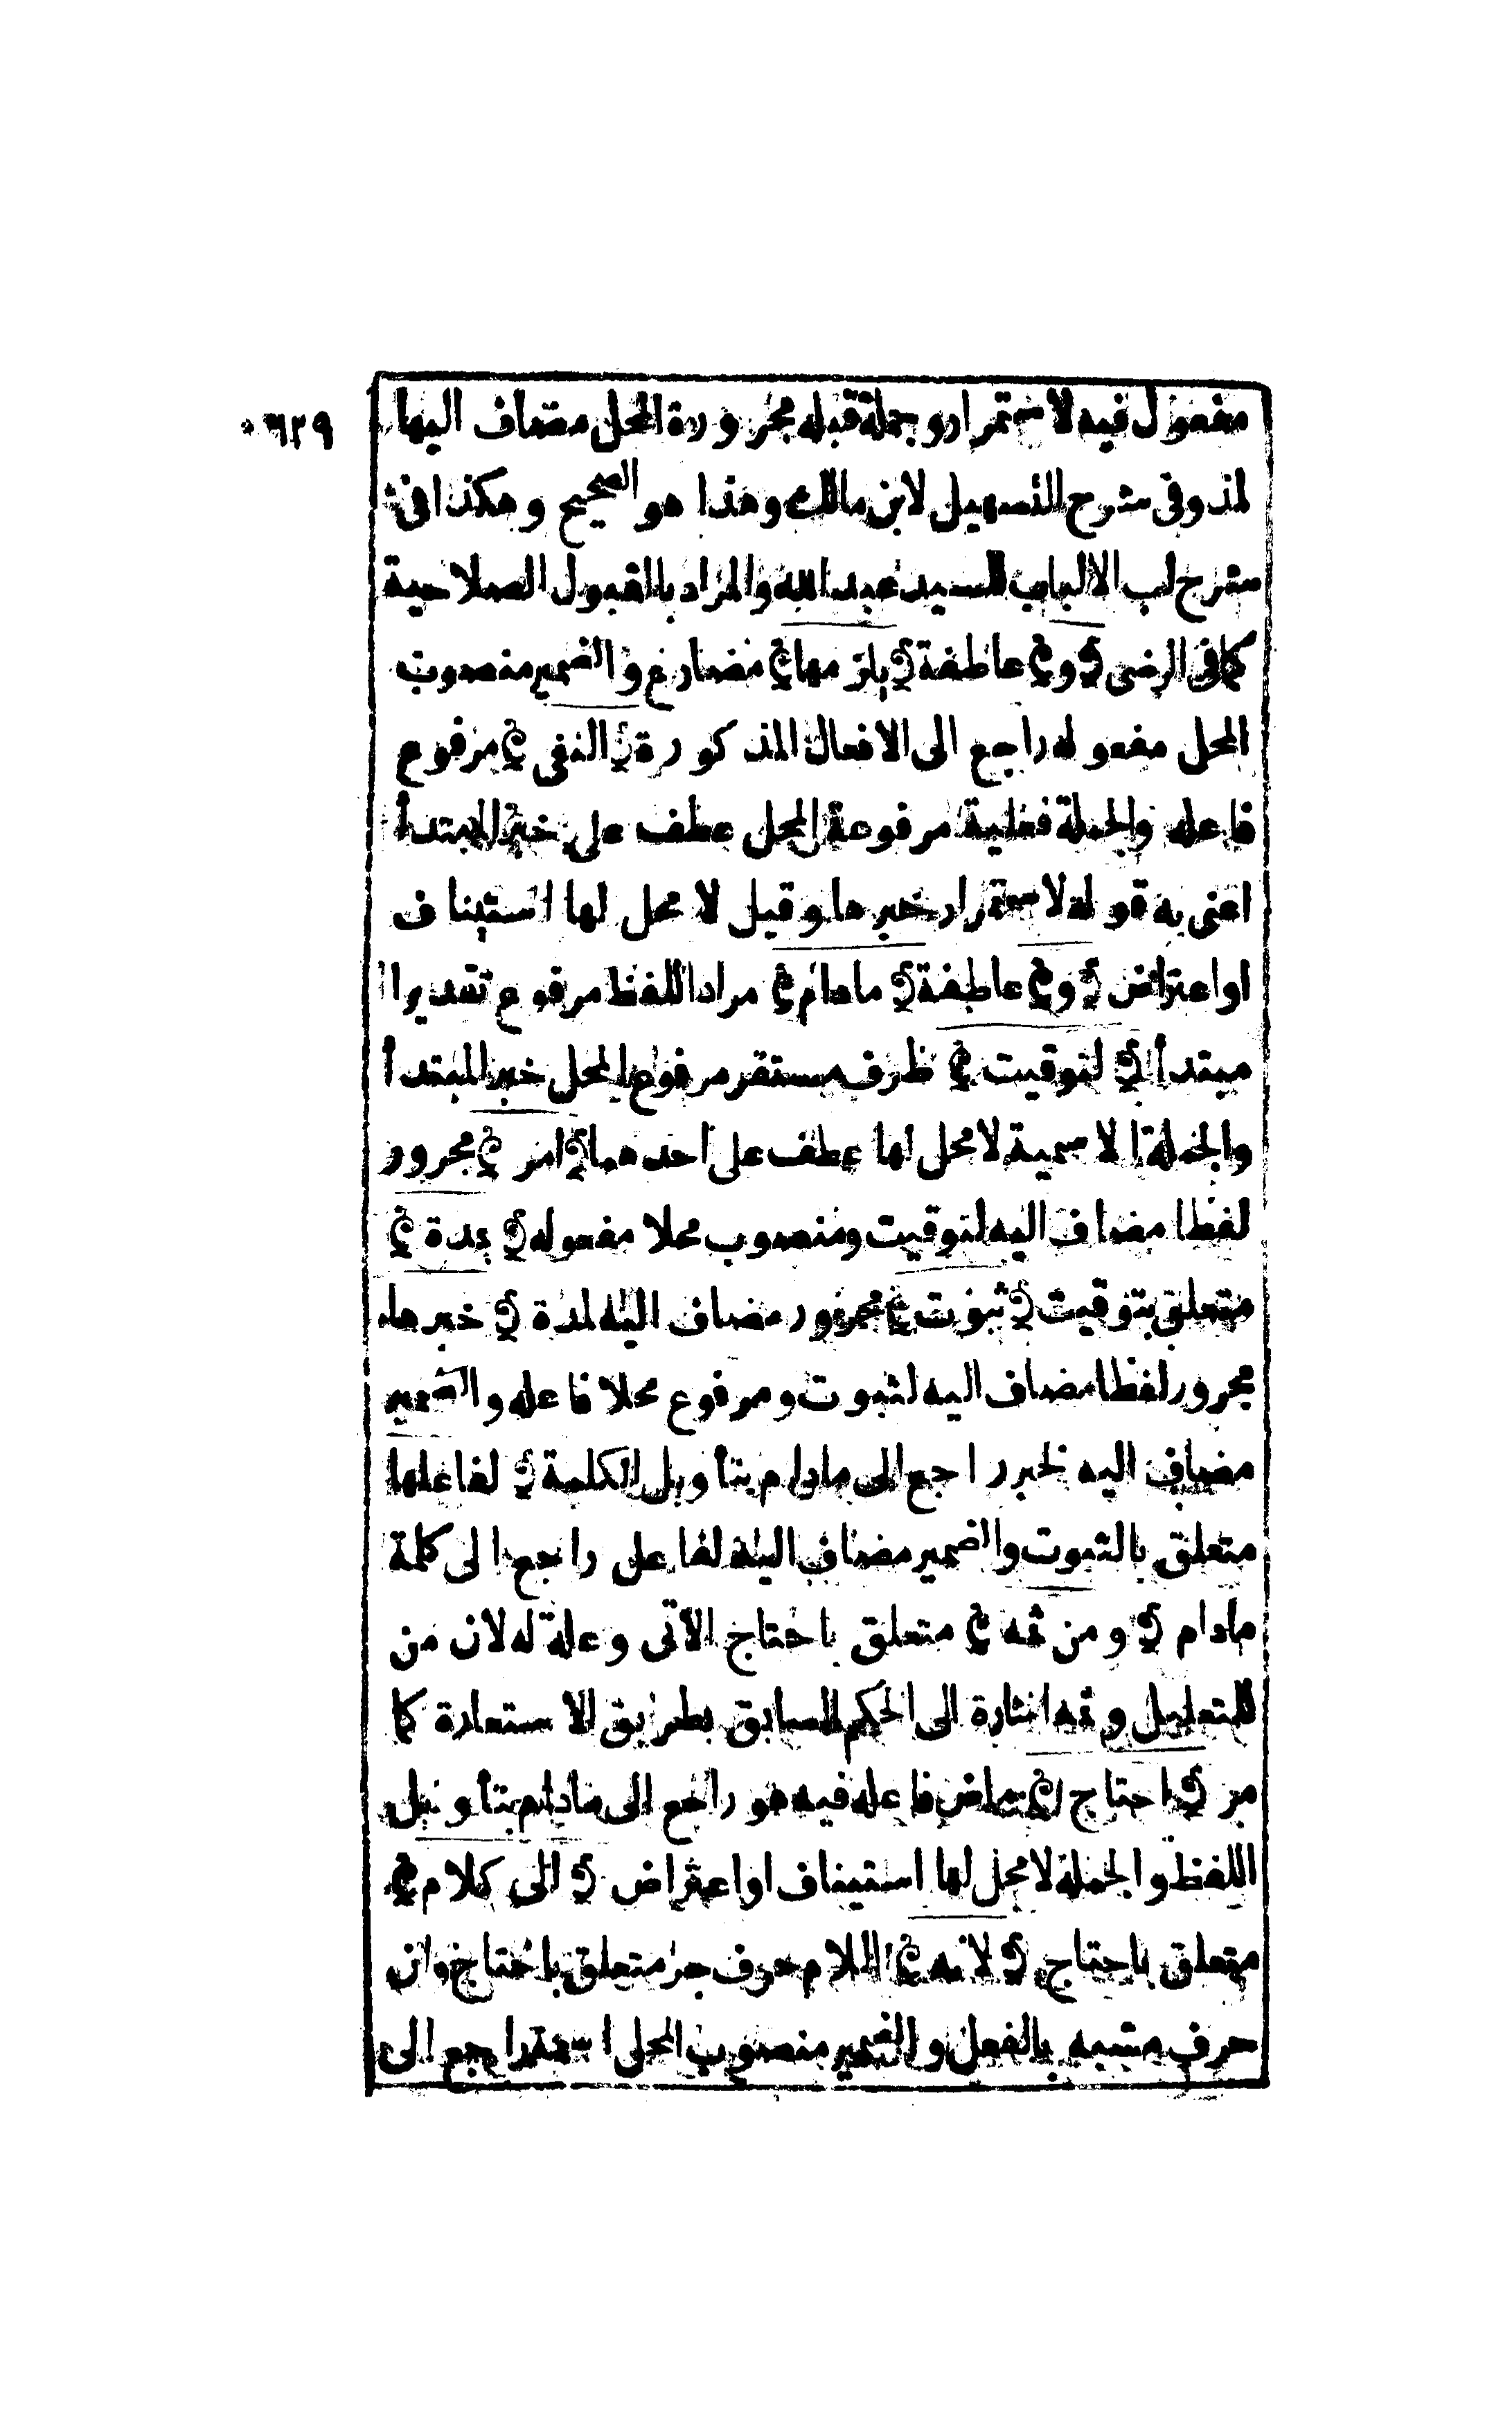 ٦٢٩
مفعول فيه لاستمرار وجملة قبله مجرورة المحل مضاف اليها
لمذ وفى شرح التسهيل لابن مالك وهذا هو الصحيح وهكذا فى
شرح لب الالباب للسيد عبد الله والمراد بالقبول الصلاحية
كما فى الرضى و عاطفة يلزمها مضارع والضمير منصوب
المحل مفعوله راجع الى الافعال المذكورة النفى مرفوع
فاعله والجملة فعلية مرفوعة المحل عطف على خبر المبتدأ
اعنى به قوله لاستمرار خبرها وقيل لا محل لها استيناف
او اعتراض و عاطفة مادام مراد اللفظ مرفوع تقديرا
مبتدأ لتوقيت ظرف مستقر مرفوع المحل خبر المبتدأ
والجملة الاسمية لا محل لها عطف على احدهما امر مجرور
لفظا مضاف اليه لتوقيت ومنصوب محلا مفعوله بمدة
متعلق بتوقيت ثبوت مجرور مضاف اليه لمدة خبرها
مجرور لفظا مضاف اليه لثبوت ومرفوع محلا فاعله والضمير
مضاف اليه لخبر راجع الى مادام بتأويل الكلمة لفاعلها
متعلق بالثبوت والضمير مضاف اليه لفاعل راجع الى كلمة
مادام ومن ثمه متعلق باحتاج الآتى وعلة له لان من
للتعليل وثمه اشارة الى الحكم السابق بطريق الاستعارة كما
مر احتاج ماض فاعله فيه هو راجع الى مادام بتأويل
اللفظ والجملة لا محل لها استيناف او اعتراض الى كلام
متعلق باحتاج لانه اللام حرف جر متعلق باحتاج وان
حرف مشبه بالفعل والضمير منصوب المحل اسمه راجع الى